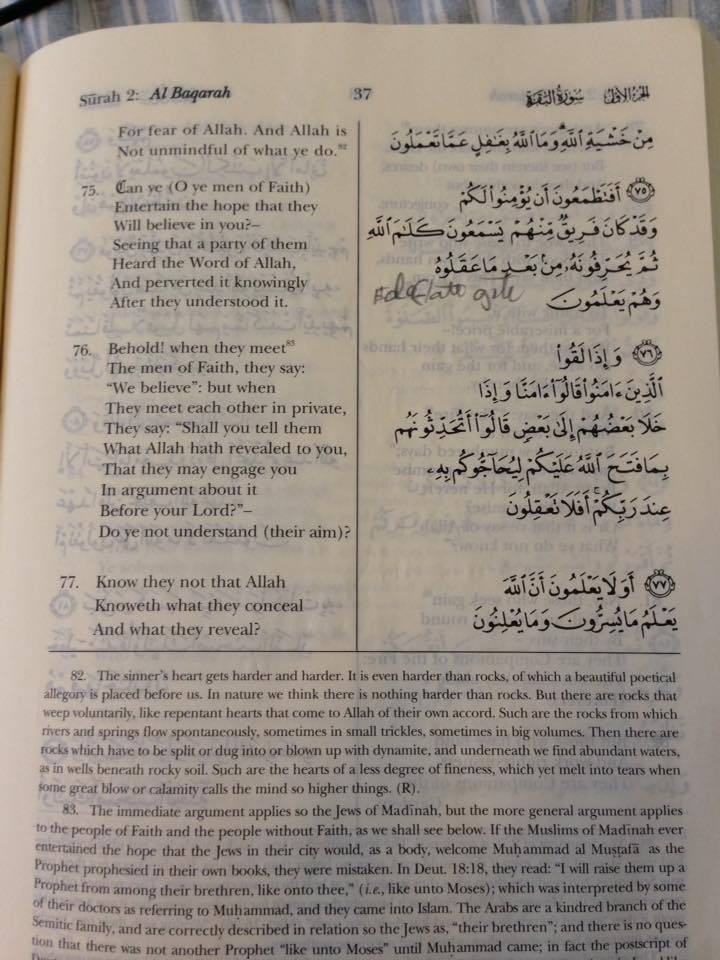 Sūrah 2: Al Baqarah 37 سورة البقرة الجزء الأول
For fear of Allah. And Allah is
Not unmindful of what ye do.82
75. Can ye (O ye men of Faith)
Entertain the hope that they
Will believe in you?–
Seeing that a party of them
Heard the Word of Allah,
And perverted it knowingly
After they understood it.
76. Behold! when they meet83
The men of Faith, they say:
“We believe”: but when
They meet each other in private,
They say: “Shall you tell them
What Allah hath revealed to you,
That they may engage you
In argument about it
Before your Lord?”–
Do ye not understand (their aim)?
77. Know they not that Allah
Knoweth what they conceal
And what they reveal?
مِنْ خَشْيَةِ اللَّهِ وَمَا اللَّهُ بِغَافِلٍ عَمَّا تَعْمَلُونَ
٧٥ أَفَتَطْمَعُونَ أَن يُؤْمِنُوا لَكُمْ
وَقَدْ كَانَ فَرِيقٌ مِّنْهُمْ يَسْمَعُونَ كَلَامَ اللَّهِ
ثُمَّ يُحَرِّفُونَهُ مِن بَعْدِ مَا عَقَلُوهُ
وَهُمْ يَعْلَمُونَ
٧٦ وَإِذَا لَقُوا
الَّذِينَ ءَامَنُوا قَالُوا ءَامَنَّا وَإِذَا
خَلَا بَعْضُهُمْ إِلَىٰ بَعْضٍ قَالُوا أَتُحَدِّثُونَهُم
بِمَا فَتَحَ اللَّهُ عَلَيْكُمْ لِيُحَاجُّوكُم بِهِ
عِندَ رَبِّكُمْ أَفَلَا تَعْقِلُونَ
٧٧ أَوَلَا يَعْلَمُونَ أَنَّ اللَّهَ
يَعْلَمُ مَا يُسِرُّونَ وَمَا يُعْلِنُونَ
82. The sinner's heart gets harder and harder. It is even harder than rocks, of which a beautiful poetical
allegory is placed before us. In nature we think there is nothing harder than rocks. But there are rocks that
weep voluntarily, like repentant hearts that come to Allah of their own accord. Such are the rocks from which
rivers and springs flow spontaneously, sometimes in small trickles, sometimes in big volumes. Then there are
rocks which have to be split or dug into or blown up with dynamite, and underneath we find abundant waters,
as in wells beneath rocky soil. Such are the hearts of a less degree of fineness, which yet melt into tears when
some great blow or calamity calls the mind so higher things. (R).
83. The immediate argument applies so the Jews of Madīnah, but the more general argument applies
to the people of Faith and the people without Faith, as we shall see below. If the Muslims of Madīnah ever
entertained the hope that the Jews in their city would, as a body, welcome Muḥammad al Muṣṭafā as the
Prophet prophesied in their own books, they were mistaken. In Deut. 18:18, they read: “I will raise them up a
Prophet from among their brethren, like onto thee,” (i.e., like unto Moses); which was interpreted by some
of their doctors as referring to Muḥammad, and they came into Islam. The Arabs are a kindred branch of the
Semitic family, and are correctly described in relation so the Jews as, “their brethren”; and there is no ques-
tion that there was not another Prophet “like unto Moses” until Muḥammad came; in fact the postscript of